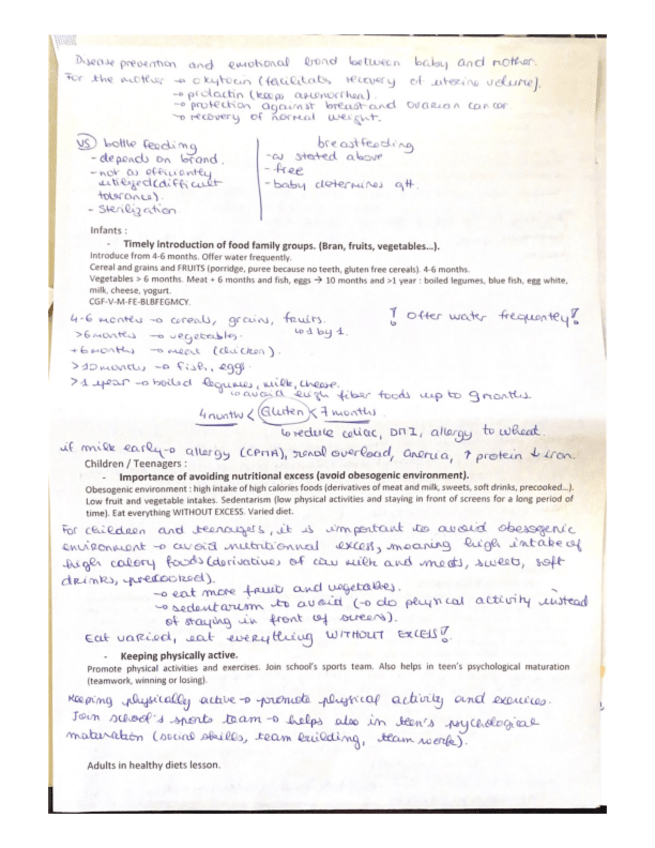 Disease prevention and emotional bond between baby and mother.
For the mother → oxytocin (facilitates recovery of uterine volume).
→ prolactin (keeps amenorrhea).
→ protection against breast and ovarian cancer.
→ recovery of normal weight.
VS bottle feeding
- depends on brand.
- not as efficiently
utilized (difficult
tolerance).
- sterilization
breastfeeding
- as stated above
- free
- baby determines qtt.
Infants :
- Timely introduction of food family groups. (Bran, fruits, vegetables...).
Introduce from 4-6 months. Offer water frequently.
Cereal and grains and FRUITS (porridge, puree because no teeth, gluten free cereals). 4-6 months.
Vegetables > 6 months. Meat + 6 months and fish, eggs → 10 months and >1 year : boiled legumes, blue fish, egg white,
milk, cheese, yogurt.
CGF-V-M-FE-BLBFEGMCY.
4-6 months → cereals, grains, fruits.
! Offer water frequently!
>6 months → vegetables. ↳ 1 by 1.
+6 months → meat (chicken).
>10 months → fish, eggs.
>1 year → boiled legumes, milk, cheese.
↳ avoid high fiber foods up to 9 months
4 months < Gluten < 7 months.
↳ reduce celiac, DM1, allergy to wheat.
if milk early → allergy (CPMA), renal overload, anemia, ↑ protein ↓ iron.
Children / Teenagers :
- Importance of avoiding nutritional excess (avoid obesogenic environment).
Obesogenic environment : high intake of high calories foods (derivatives of meat and milk, sweets, soft drinks, precooked...).
Low fruit and vegetable intakes. Sedentarism (low physical activities and staying in front of screens for a long period of
time). Eat everything WITHOUT EXCESS. Varied diet.
For children and teenagers, it is important to avoid obesogenic
environment → avoid nutritionnal excess, meaning high intake of
high calory foods (derivatives of cow milk and meats, sweets, soft
drinks, precooked).
→ eat more fruits and vegetables.
→ sedentarism to avoid (→ do physical activity instead
of staying in front of screens).
Eat varied, eat everything WITHOUT EXCESS!
- Keeping physically active.
Promote physical activities and exercises. Join school's sports team. Also helps in teen's psychological maturation
(teamwork, winning or losing).
Keeping physically active → promote physical activity and exercises.
Join school's sports team → helps also in teen's psychological
maturation (social skills, team building, team work).
Adults in healthy diets lesson.